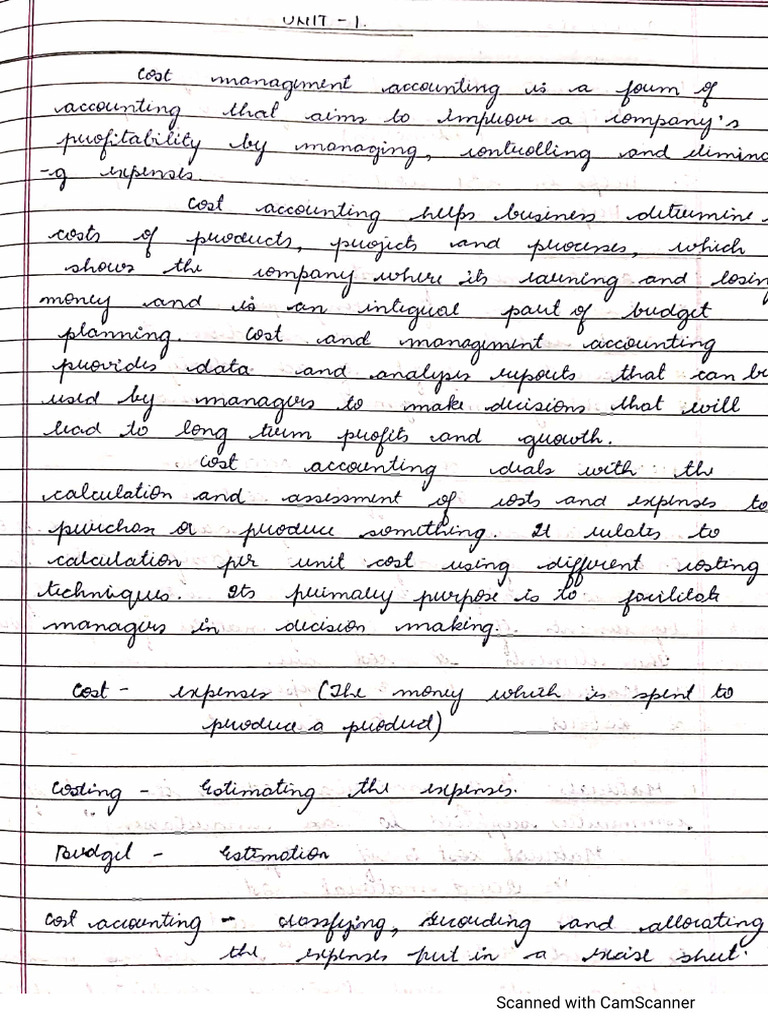 UNIT - 1.
Cost management accounting is a form of
accounting that aims to improve a company's
profitability by managing, controlling and elimina
-g expenses.
Cost accounting helps business determine
costs of products, projects and processes, which
shows the company where its earning and losing
money and is an integral part of budget
planning. Cost and management accounting
provides data and analysis reports that can be
used by managers to make decisions that will
lead to long term profits and growth.
Cost accounting deals with the
calculation and assessment of costs and expenses to
purchase or produce something. It relates to
calculation per unit cost using different costing
techniques. Its primary purpose is to facilitate
managers in decision making.
Cost - expenses (The money which is spent to
produce a product)
Costing - Estimating the expenses.
Budget - Estimation
Cost accounting - classifying, recording and allocating
the expenses put in a sheet.
Scanned with CamScanner